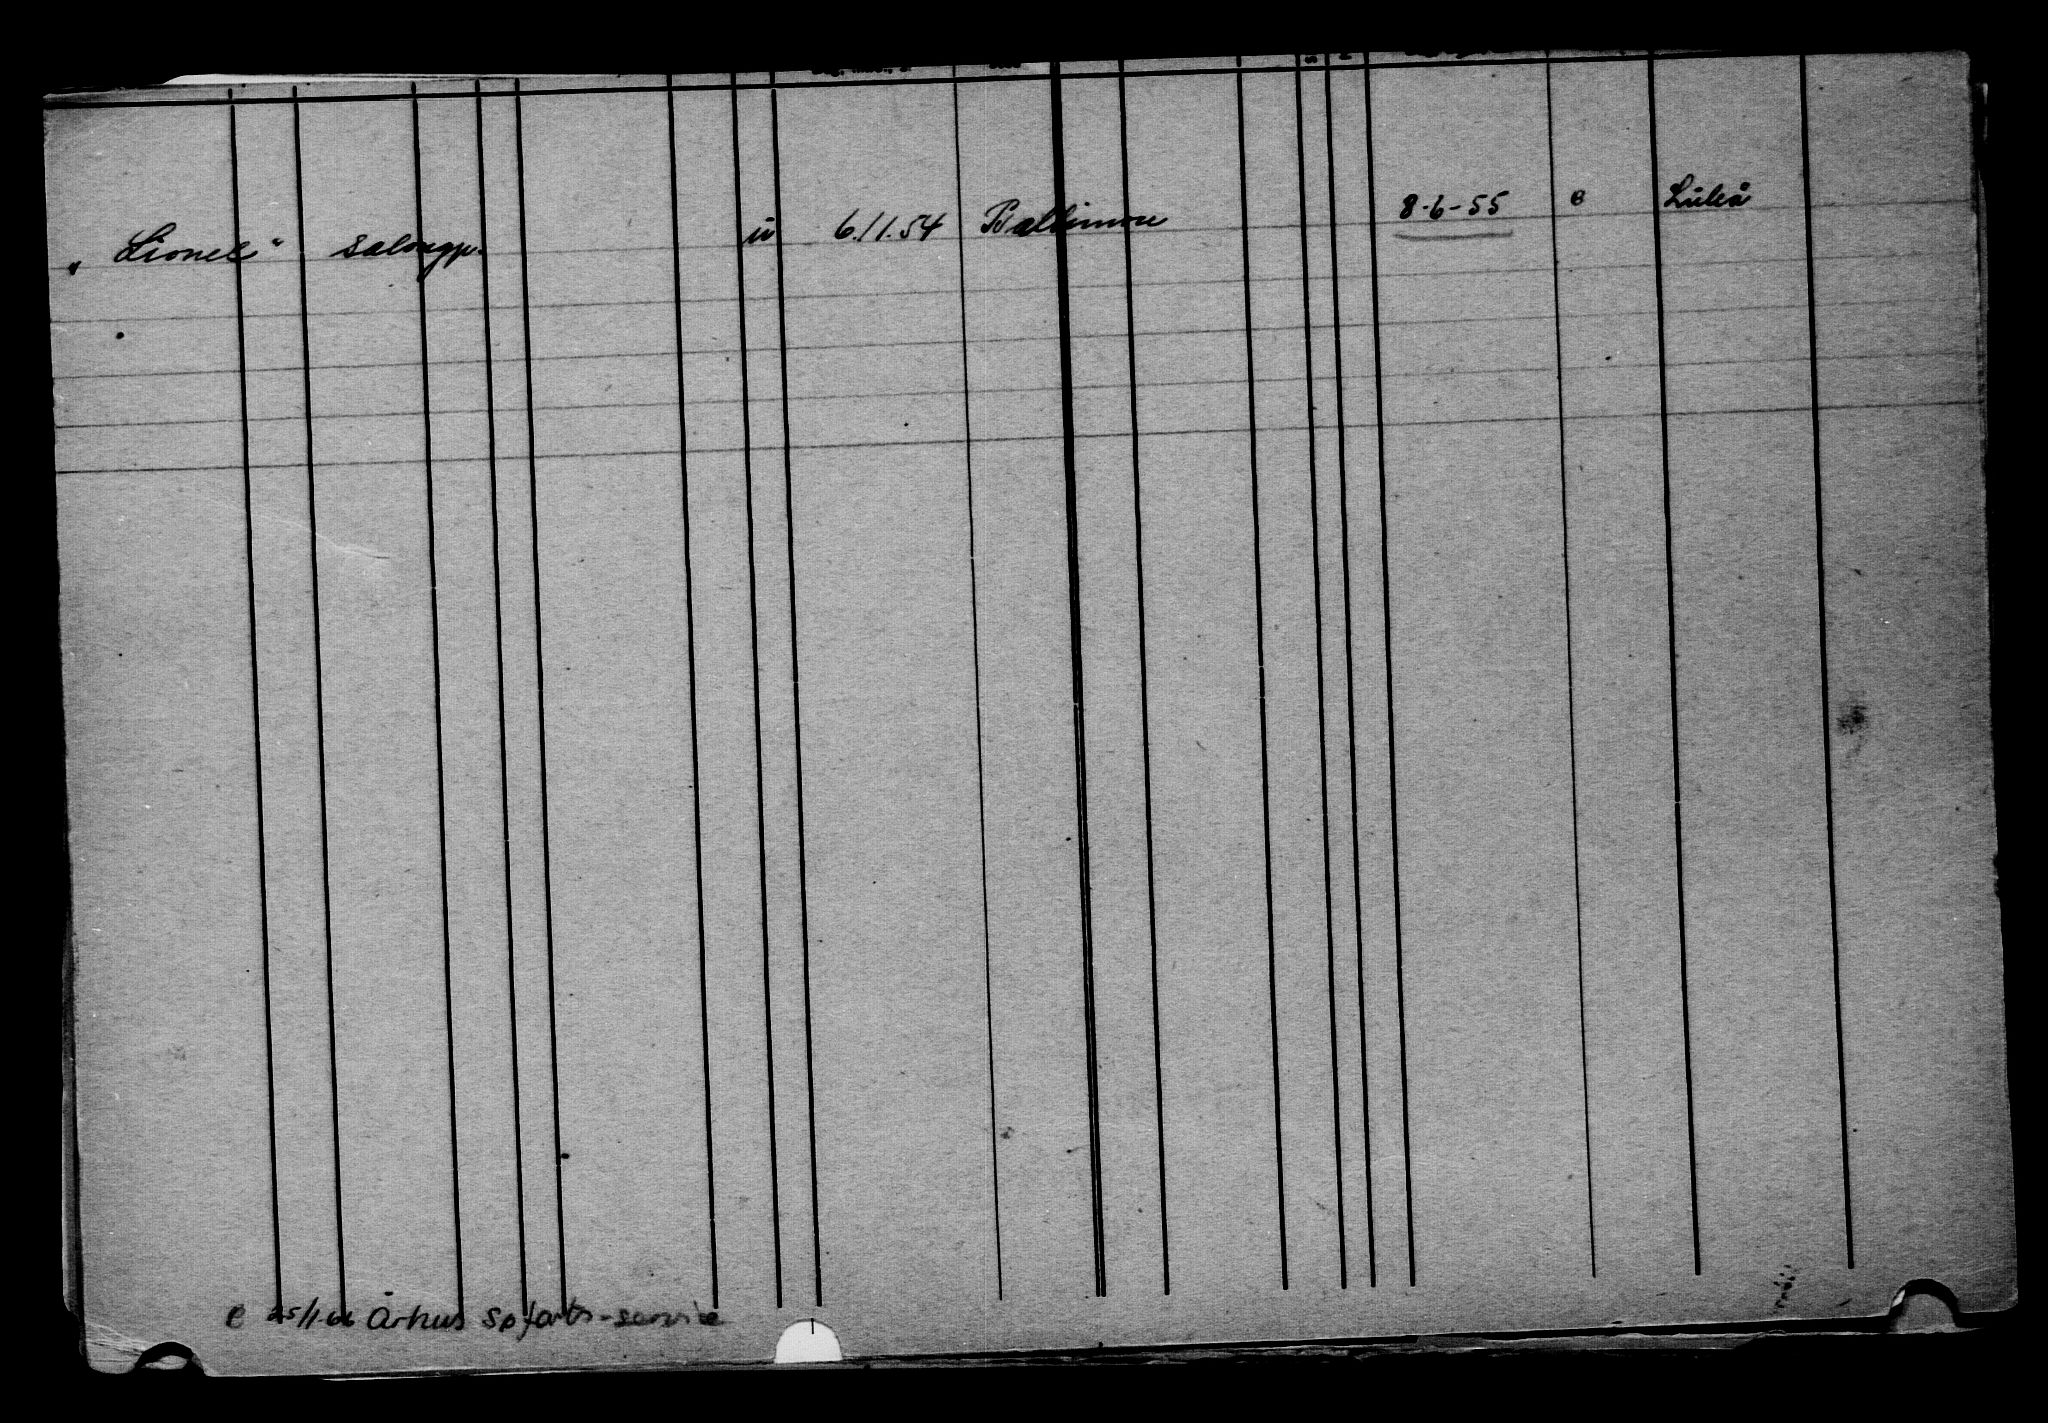 „Lionel“ salongp. u 6.11.54 Baltimore 8-6-55 e Luleå
e 25/1-66 Århus Søfarts-service